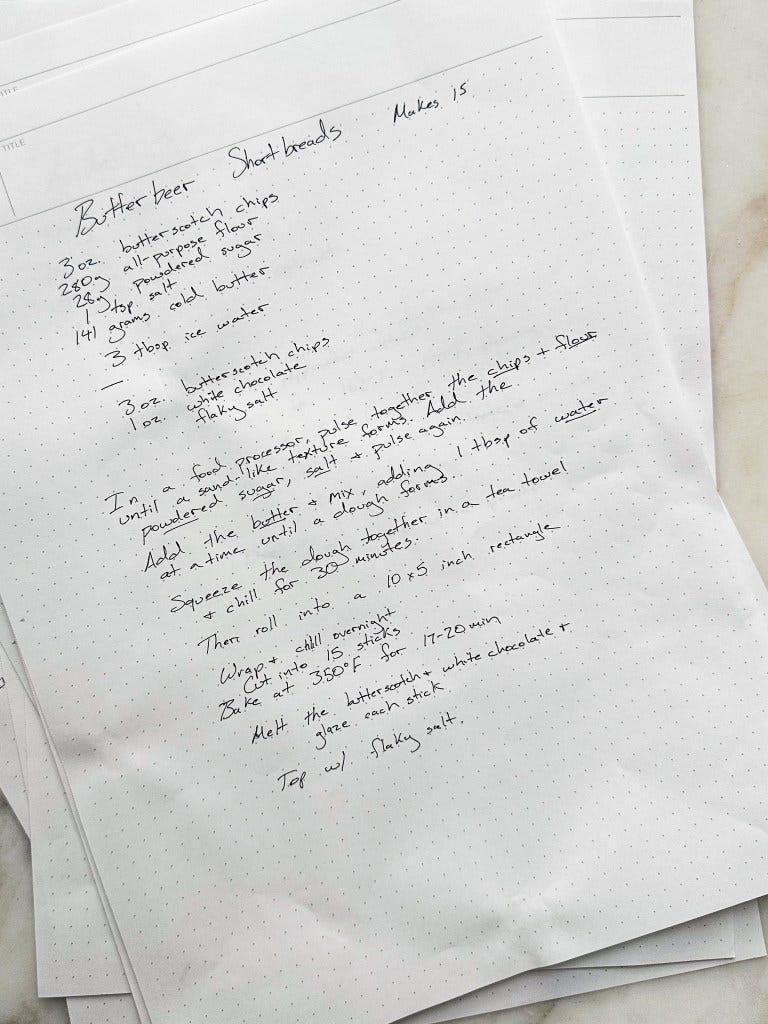 TITLE
TITLE
Butterbeer Shortbreads Makes 15
3 oz. butterscotch chips
280g all-purpose flour
28g powdered sugar
1 tsp salt
141 grams cold butter
3 tbsp ice water
—
3 oz. butterscotch chips
1 oz. white chocolate
flaky salt
In a food processor, pulse together the chips + flour
until a sand-like texture forms. Add the
powdered sugar, salt + pulse again.
Add the butter + mix, adding 1 tbsp of water
at a time until a dough forms.
Squeeze the dough together in a tea towel
+ chill for 30 minutes.
Then roll into a 10x5 inch rectangle
Wrap + chill overnight
Cut into 15 sticks
Bake at 350°F for 17-20 min
Melt the butterscotch + white chocolate +
glaze each stick
Top w/ flaky salt.